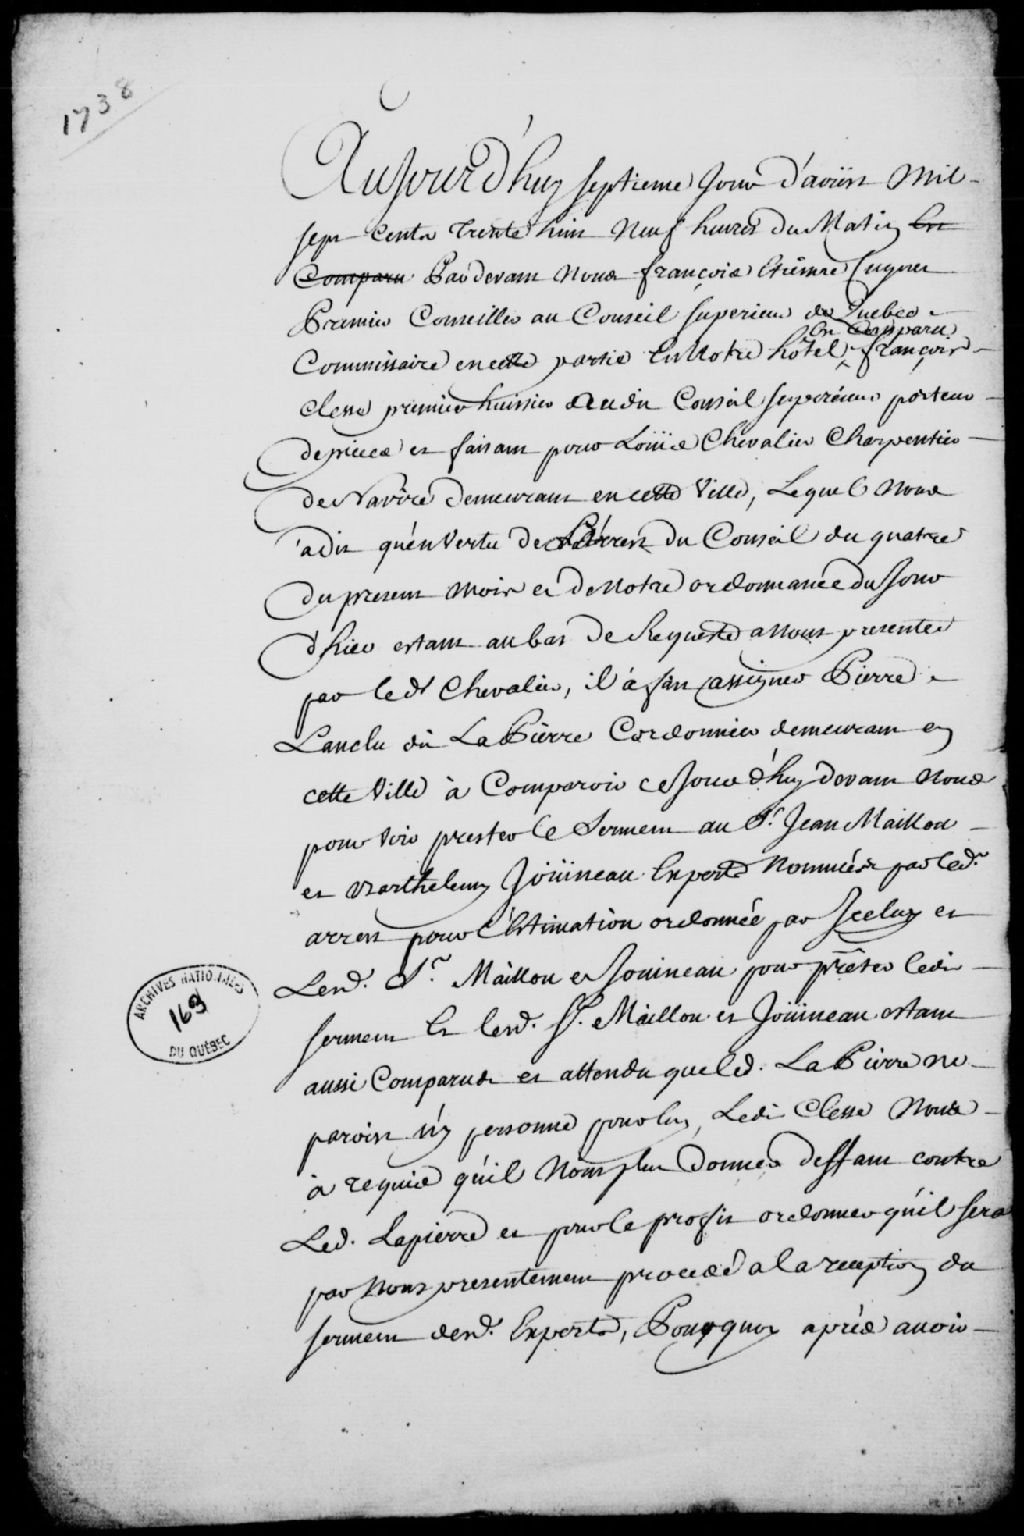 1738
Aujourd'huy septieme Jour d'avril Mil
sept Cents Trente huit Neuf heures du Matin Est
Comparu Pardevant Nous françois Etienne Cugnet
Premier Conseiller au Conseil superieur de Quebec
est Comparu
Commissaire en cette partie En Notre hôtel françois
Clesse premier huissier audit Conseil superieur porteur
de pieces et faisant pour Loüis Chevalier Charpentier
de Navire demeurant en cette Ville, Lequel Nous
a dit qu'en Vertu de L'arrest du Conseil du quatre
du present mois et de Notre ordonnance du Jour
d'hier estant au bas de Requeste a Nous presentée
par led. Chevalier, il a fait assigner Pierre
Lanclu dit La Pierre Cordonnier demeurant en
cette Ville à Comparoir ce Jour d'huy devant Nous
pour Voir prester le Serment au Sr. Jean Maillou
et Barthelemy Joüineau Experts Nommés par led.
arrest pour l'Estimation ordonnée par Iceluy et
Lesd. Sr. Maillou et Joüineau pour prêter ledit
serment Et lesd. Sr. Maillou et Joüineau estant
aussi Comparus et attendu que led. La Pierre ne
paroist ny personne pour luy, Ledit Clesse Nous
à requis qu'il Nous plut Donner deffaut contre
Led. Lapierre et pour le profit ordonner qu'il sera
par Nous presentement procedé a la reception du
serment desd. Experts, Pourquoy après avoir
ARCHIVES NATIONALES
163
DU QUÉBEC